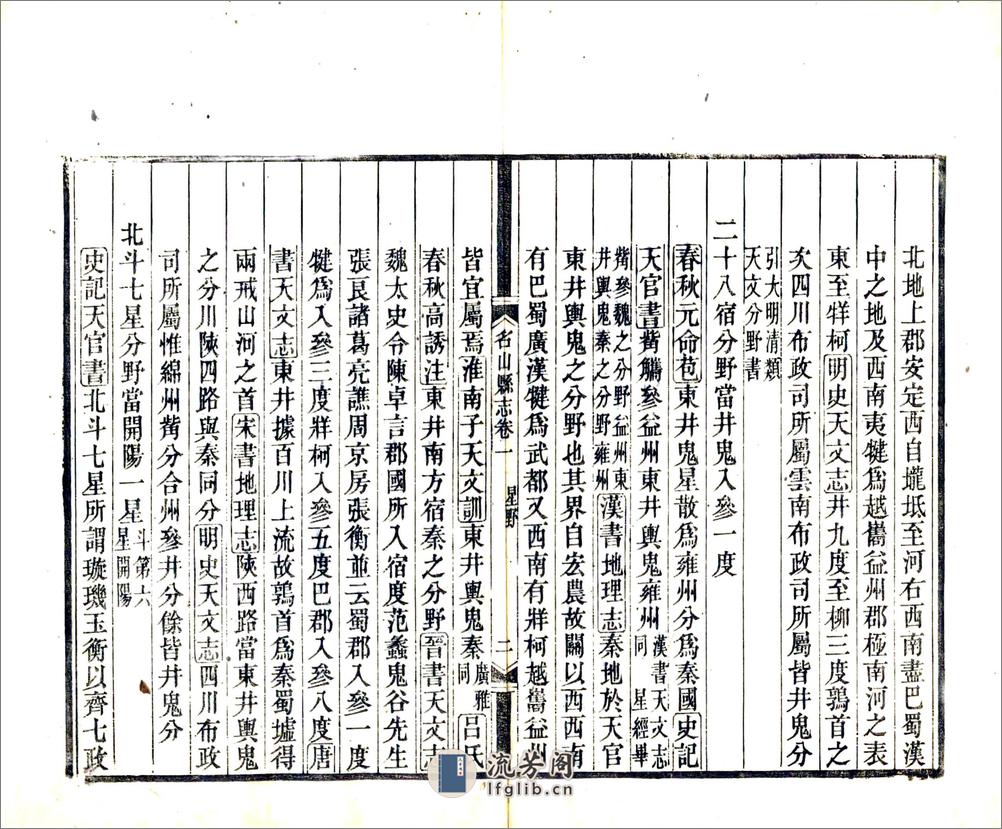 北地上郡安定西自壠坻至河右西南盡巴蜀漢
中之地及西南夷犍爲越巂益州郡極南河之表
東至牂柯明史天文志井九度至柳三度鶉首之
次四川布政司所屬雲南布政司所屬皆井鬼分
引大明清類
天文分野書
二十八宿分野當井鬼入參一度
春秋元命苞東井鬼星散爲雍州分爲秦國史記
天官書觜觿參益州東井輿鬼雍州漢書天文志同 星經畢
觜參魏之分野益州東井輿鬼秦之分野雍州漢書地理志秦地於天官
東井輿鬼之分野也其界自宏農故關以西西南
有巴蜀廣漢犍爲武都又西南有牂柯越巂益州
名山縣志卷一 星野 二
皆宜屬焉淮南子天文訓東井輿鬼秦廣雅同呂氏
春秋高誘注東井南方宿秦之分野晉書天文志
魏太史令陳卓言郡國所入宿度范蠡鬼谷先生
張良諸葛亮譙周京房張衡並云蜀郡入參一度
犍爲入參三度牂柯入參五度巴郡入參八度唐
書天文志東井據百川上流故鶉首爲秦蜀墟得
兩戒山河之首宋書地理志陝西路當東井輿鬼
之分川陝四路與秦同分明史天文志四川布政
司所屬惟綿州觜分合州參井分餘皆井鬼分
北斗七星分野當開陽一星斗第六星開陽
史記天官書北斗七星所謂璇璣玉衡以齊七政
流芳阁
lfglib.cn